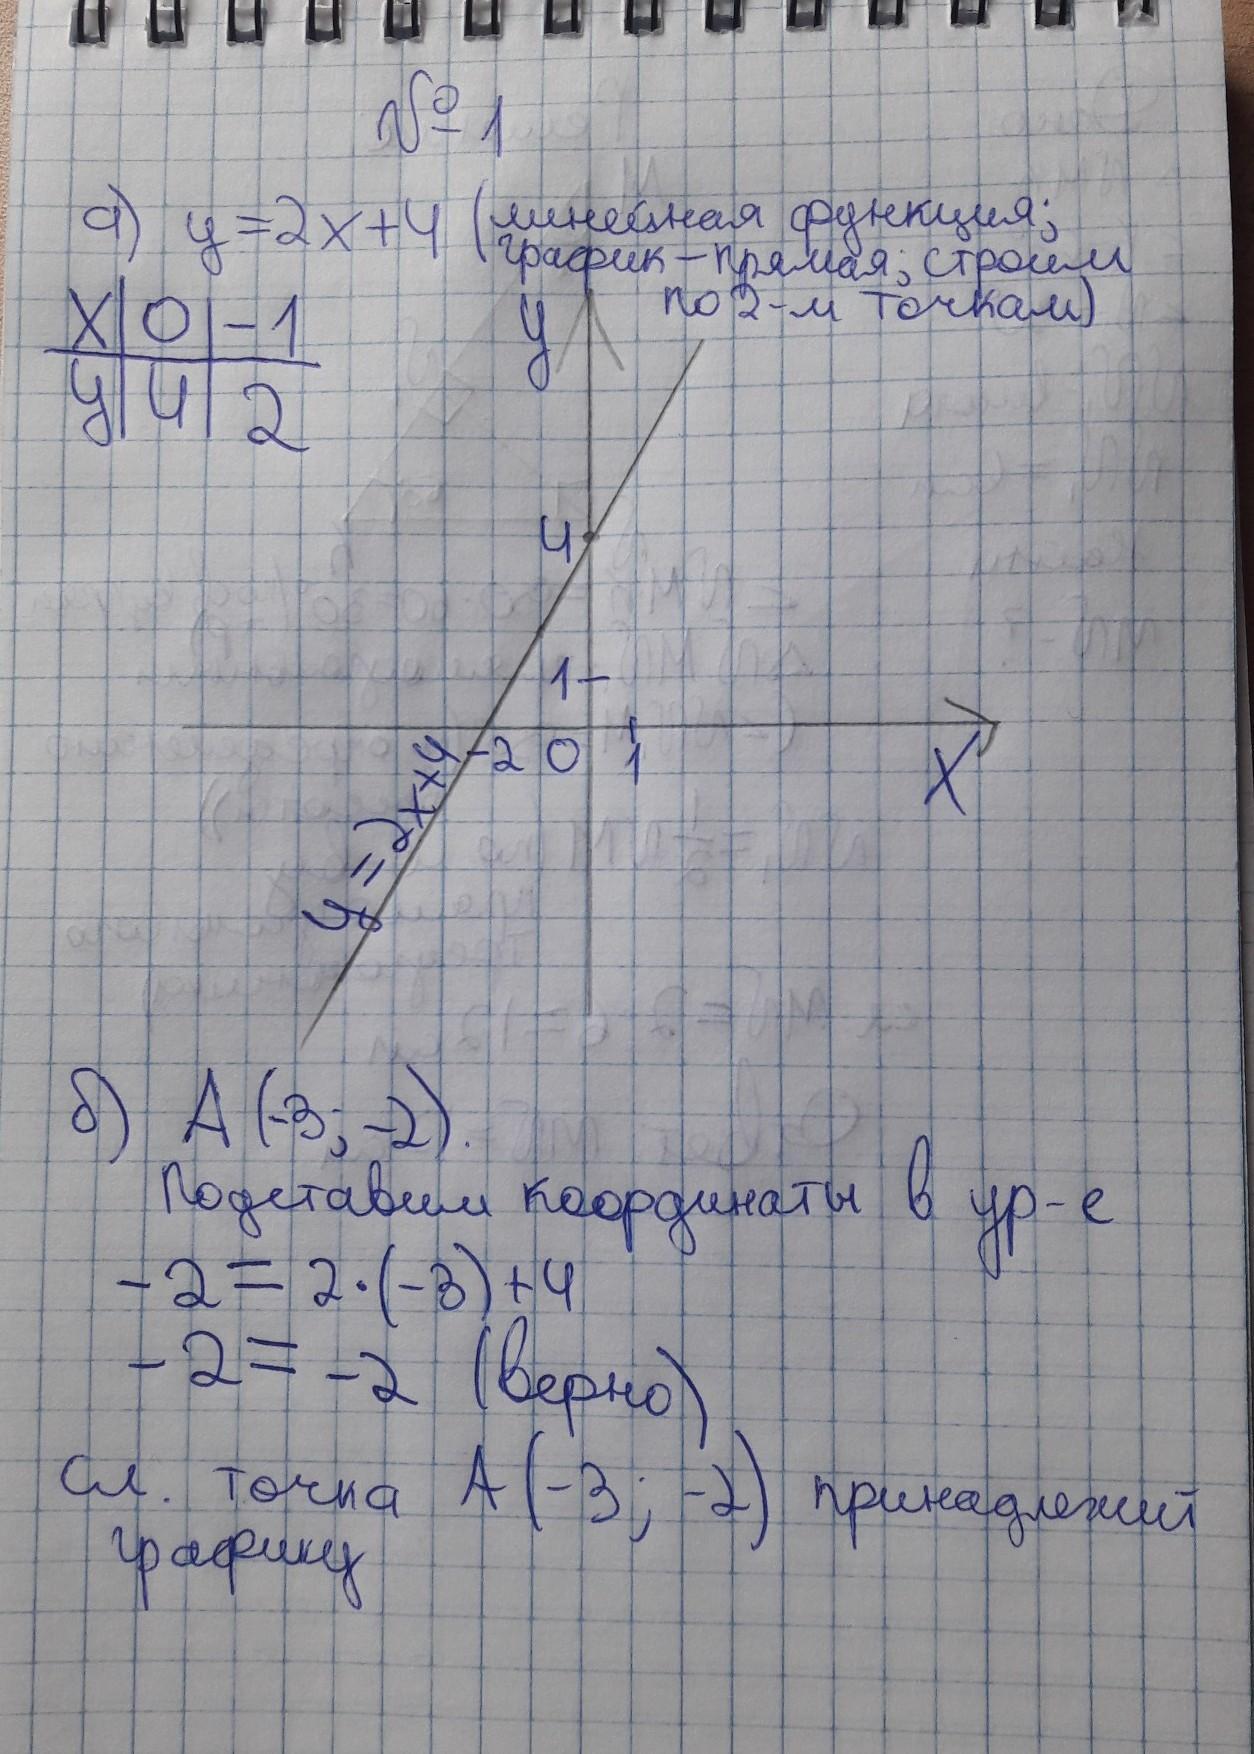 № 1
а) y=2x+4 (линейная функция;
график – прямая; строим
по 2-м точкам)
x | 0 | -1
y | 4 | 2
y
4
1
-2 0 1
x
y=2x+4
б) A (-3; -2).
Подставим координаты в ур-е
-2 = 2·(-3)+4
-2 = -2 (верно)
Сл. точка A (-3; -2) принадлежит
графику